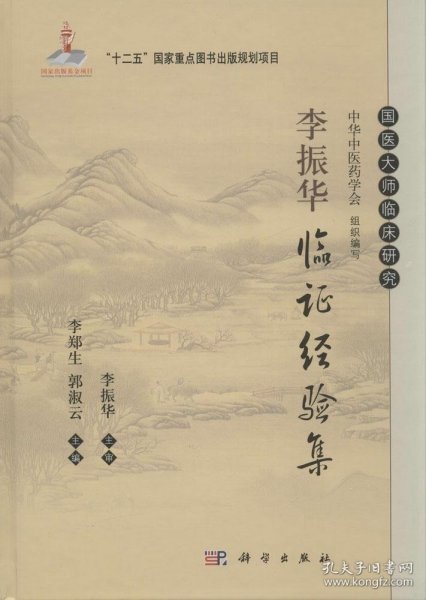 国家出版基金项目
"十二五"国家重点图书出版规划项目
国医大师临床研究
中华中医药学会 组织编写
李振华临证经验集
李振华 主审
李郑生 郭淑云 主编
SP 科学出版社
孔夫子旧书网
www.kongfz.com